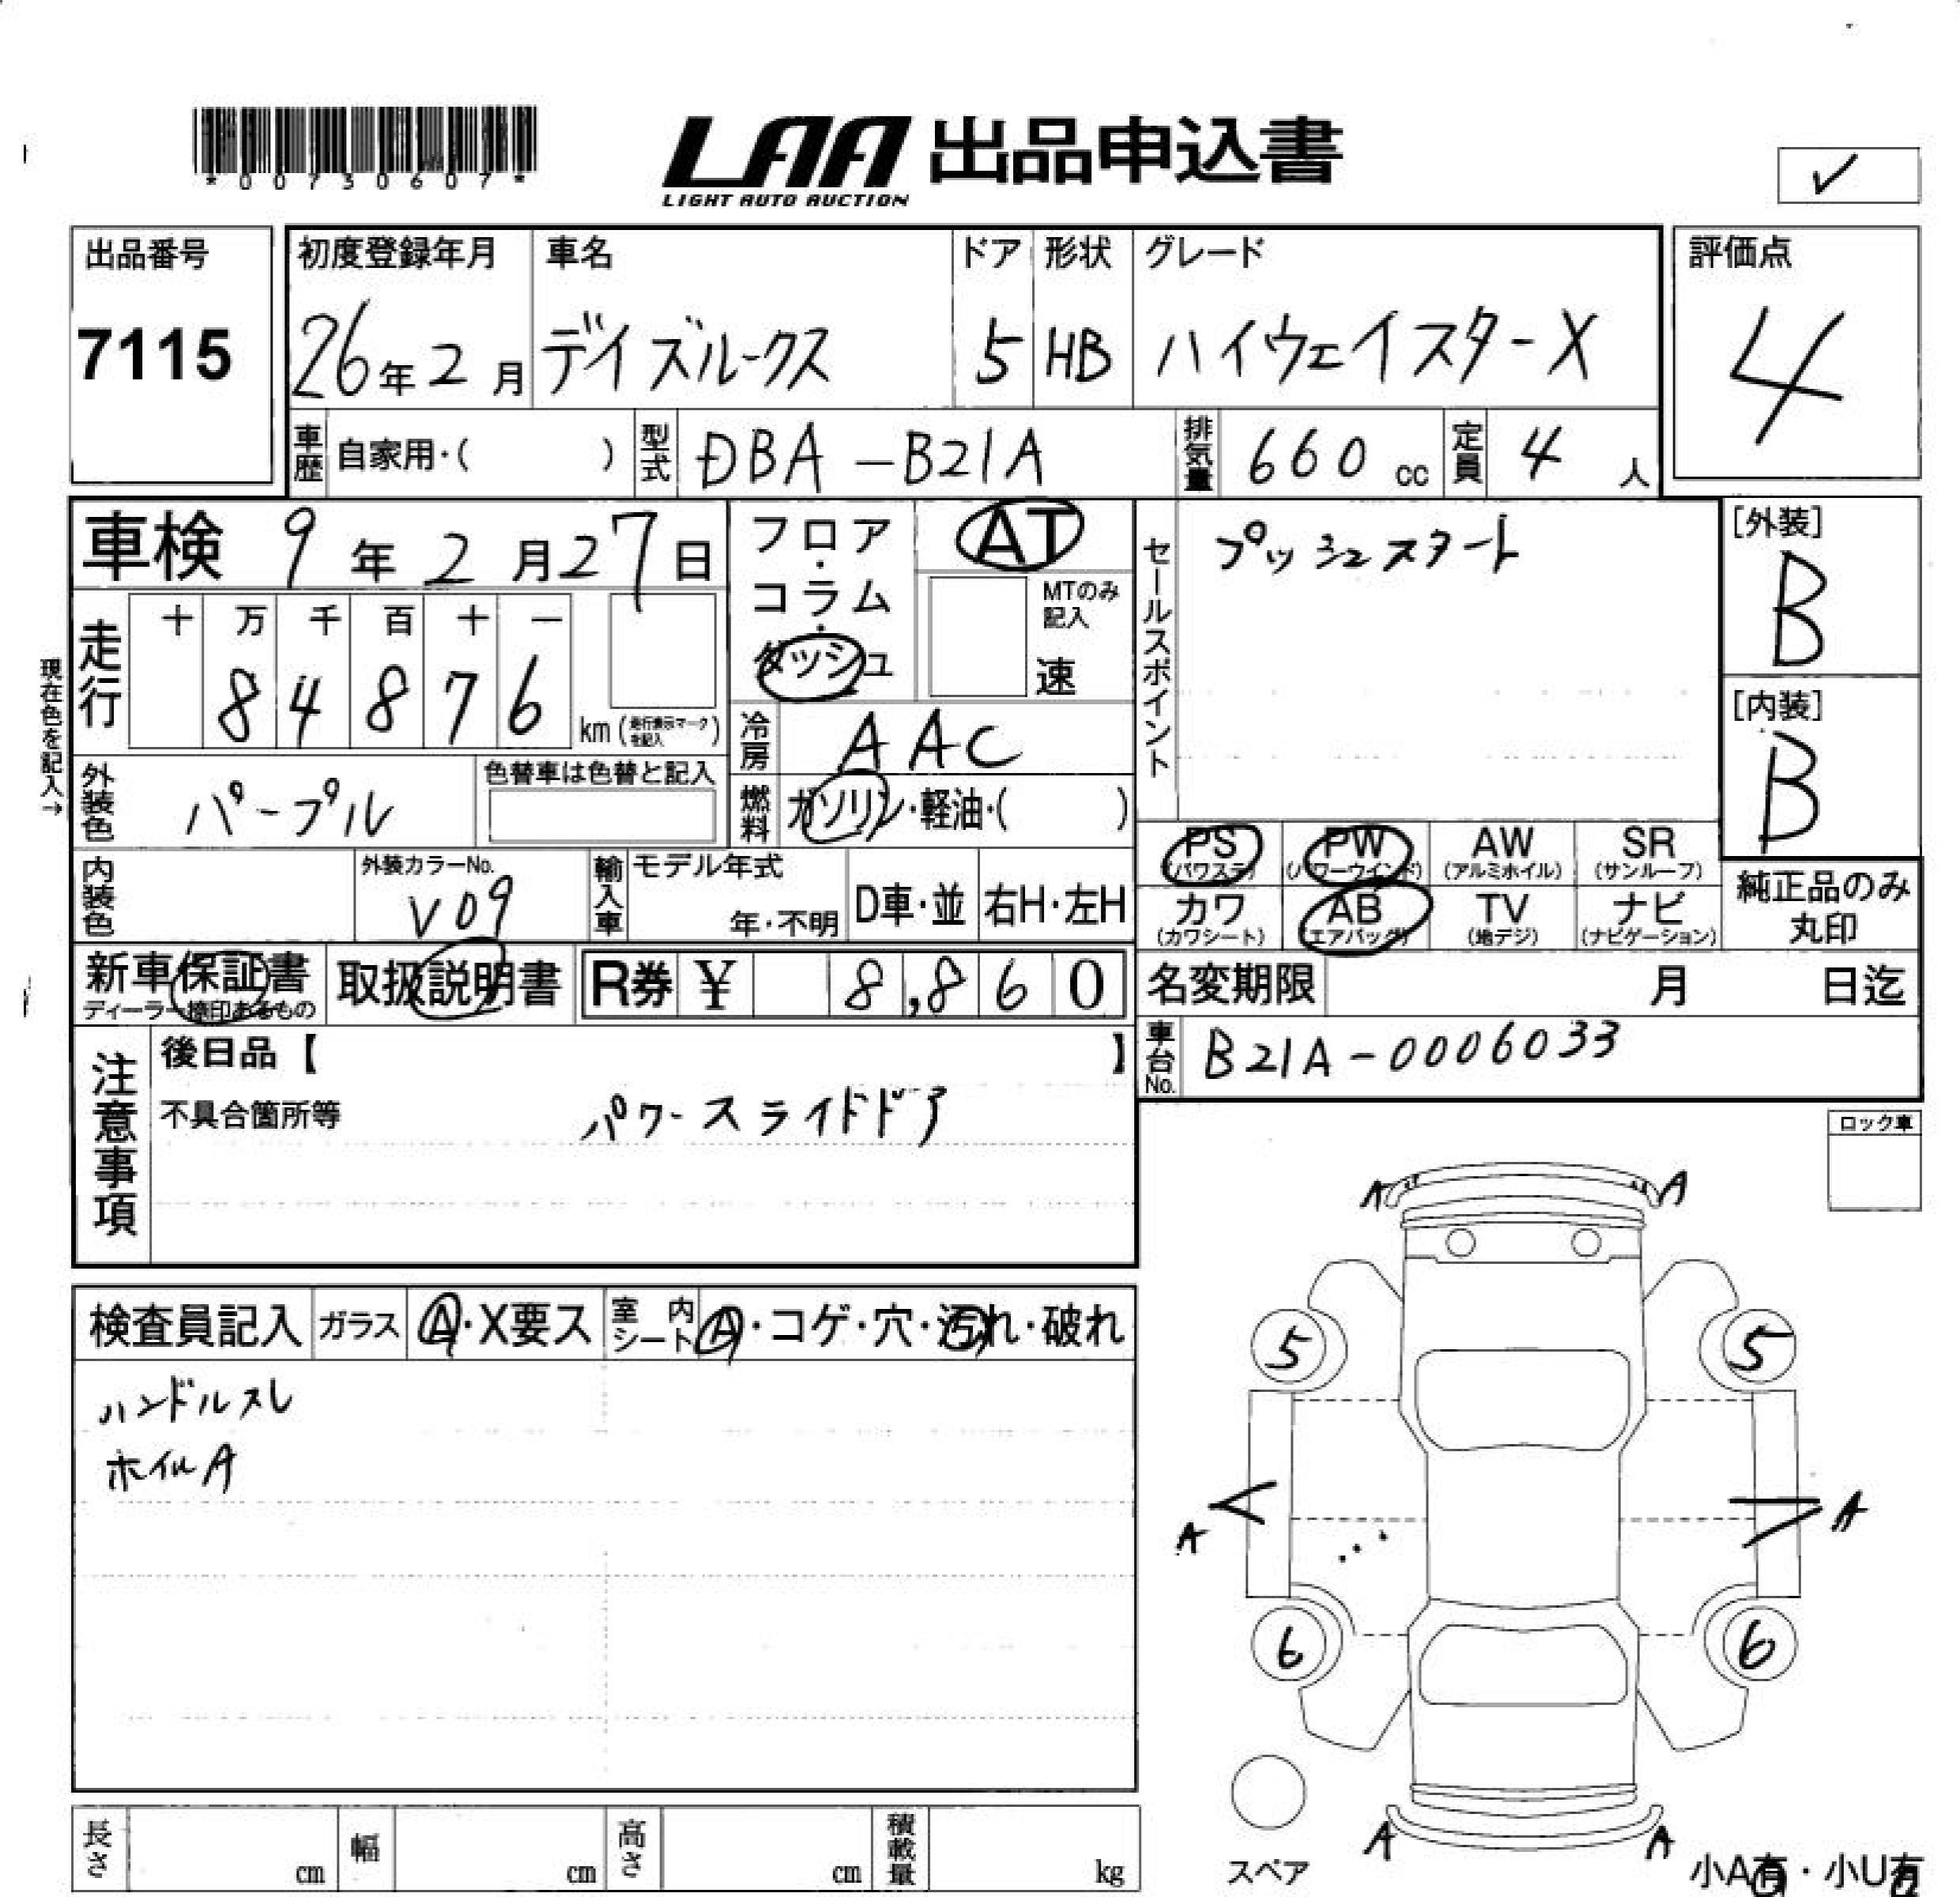 *00730607*
LAA 出品申込書
LIGHT AUTO AUCTION
✓
出品番号
7115
初度登録年月
26年2月
車名
デイズルークス
ドア
5
形状
HB
グレード
ハイウェイスターX
評価点
4
車歴 自家用・( )
型式 DBA-B21A
排気量 660 cc
定員 4 人
車検 9年2月27日
フロア・コラム・ダッシュ
AT
MTのみ記入
速
セールスポイント
プッシュスタート
[外装]
B
[内装]
B
現在色を記入→
走行
十 万 千 百 十 一
8 4 8 7 6
km (走行表示マークを記入)
冷房 AAC
外装色 パープル
色替車は色替と記入
燃料 ガソリン・軽油・( )
PS (パワステ)
PW (パワーウインド)
AW (アルミホイル)
SR (サンルーフ)
カワ (カワシート)
AB (エアバッグ)
TV (地デジ)
ナビ (ナビゲーション)
純正品のみ丸印
内装色
外装カラーNo.
V09
輸入車
モデル年式
年・不明
D車・並
右H・左H
新車保証書
ディーラー捺印あるもの
取扱説明書
R券 ¥ 8,860
名変期限 月 日迄
車台No. B21A-0006033
注意事項
後日品【 】
不具合箇所等
パワースライドドア
ロック車
検査員記入
ガラス A・X要ス
室内シート A・コゲ・穴・汚れ・破れ
ハンドルスレ
ホイルA
A A
5 5
A A
6 6
A A
スペア
小A有・小U有
長さ cm
幅 cm
高さ cm
積載量 kg